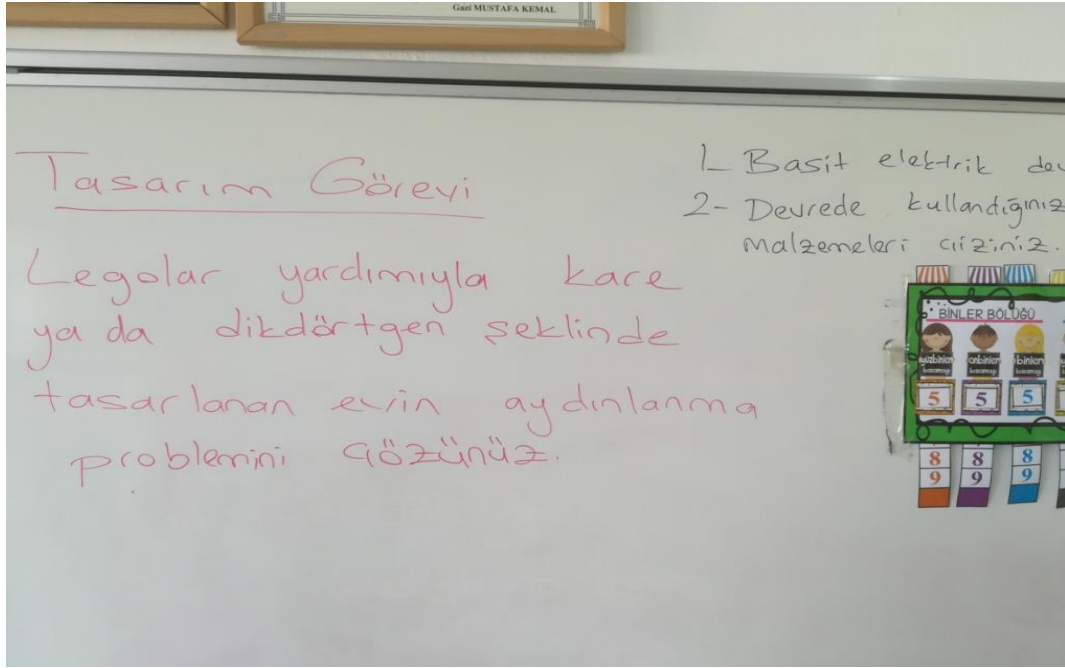 Gazi MUSTAFA KEMAL
Tasarım Görevi
Legolar yardımıyla kare
ya da dikdörtgen şeklinde
tasarlanan evin aydınlanma
problemini çözünüz.
1- Basit elektrik dev
2- Devrede kullandığınız
malzemeleri çiziniz.
BİNLER BÖLÜĞÜ
yüzbinler onbinler binler
basamağı basamağı basamağı
5 5 5
8 8 8
9 9 9